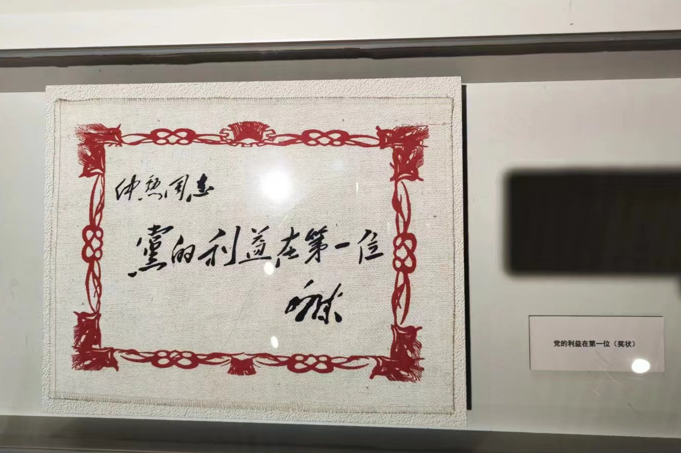 仲勋同志
黨的利益在第一位
党的利益在第一位（奖状）